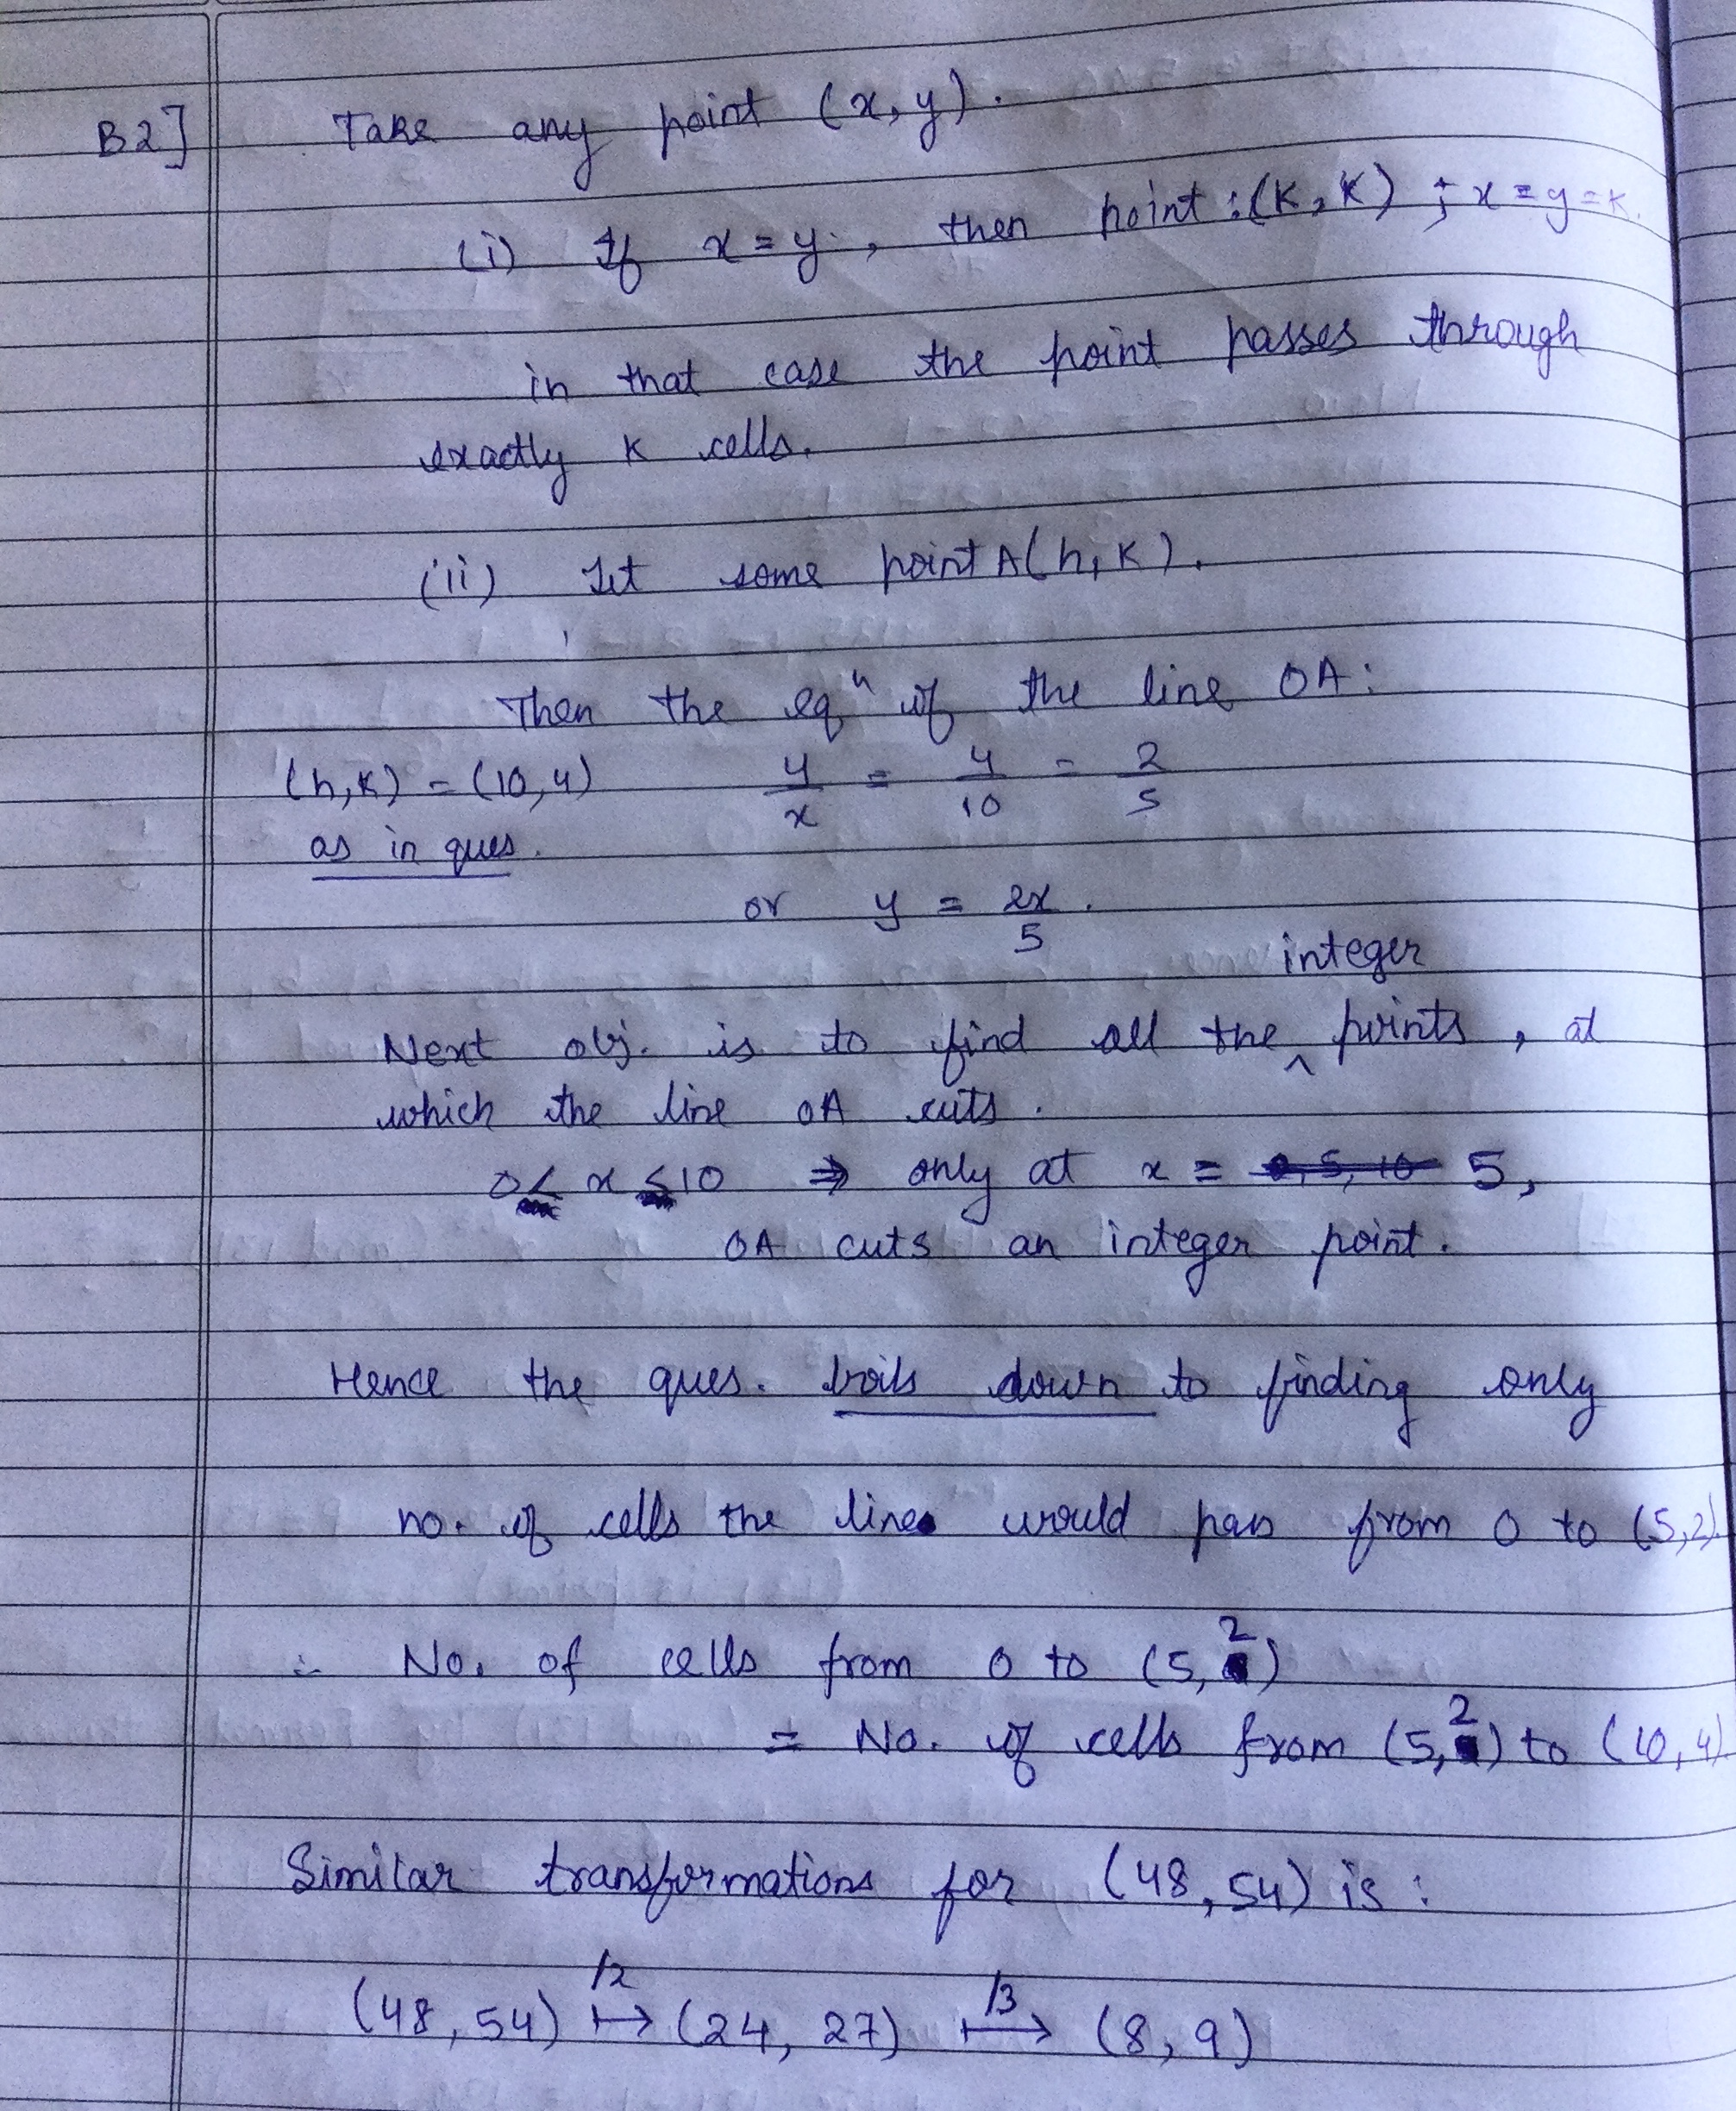 B2] Take any point (x, y).
(i) If x = y, then point : (K, K) ; x = y = K.
in that case the point passes through
exactly K cells.
(ii) Let some point A(h, K).
Then the eqⁿ of the line OA :
(h, K) = (10, 4) y/x = 4/10 = 2/5
as in ques.
or y = 2x/5.
integer
Next obj. is to find all the ^ points, at
which the line OA cuts.
0 < x ≤ 10 ⇒ only at x = 5,
OA cuts an integer point.
Hence the ques. boils down to finding only
no. of cells the line would pass from O to (5,2).
∴ No. of cells from O to (5, 2)
= No. of cells from (5, 2) to (10, 4).
Similar transformations for (48, 54) is :
(48, 54) /2 ↦ (24, 27) /3 ↦ (8, 9)